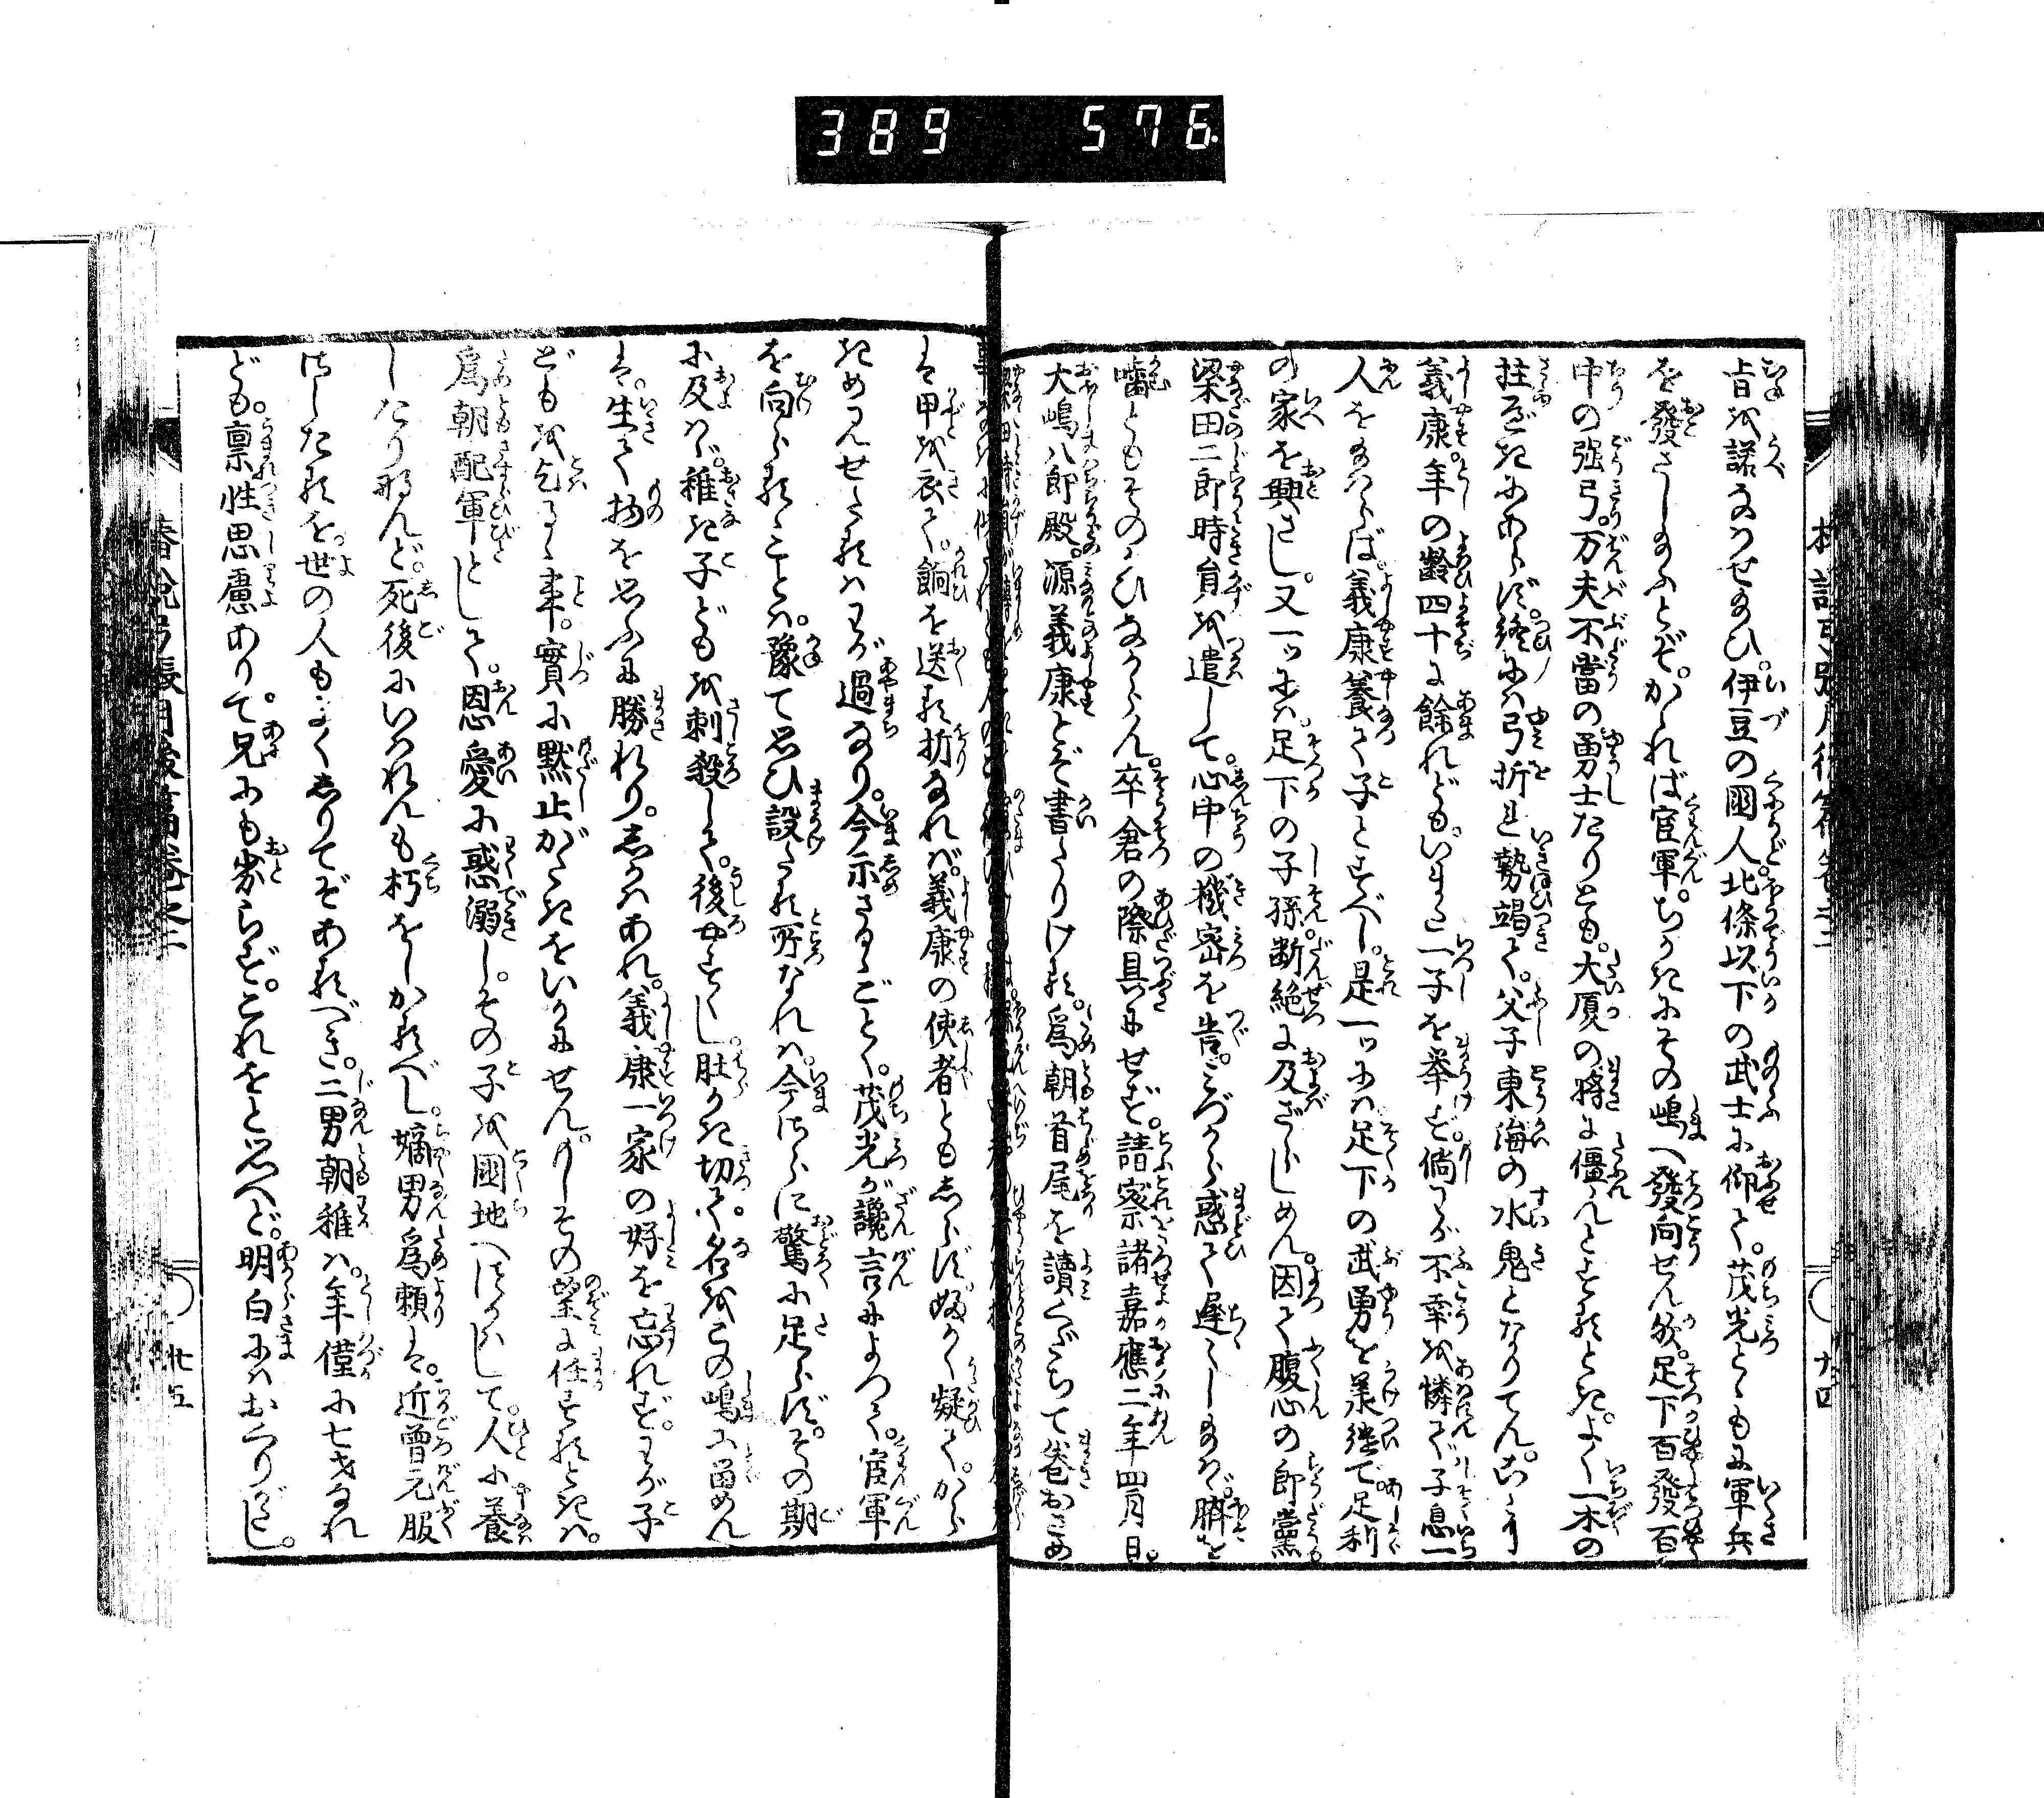 389 576
旨を諾なはせ給ひ。伊豆の國人。北條以下の武士に仰て。茂光とゝもに軍兵
を發さし給ふとぞ。かゝれば官軍。ちかきにその嶋へ發向せん歟。足下百發百
中の強弓。万夫不當の勇士たりとも。大厦の將に僵れんとするとき。よく一木の
拄べきにあらず。終には弓折れ勢竭て。父子東海の水鬼となりてん。こゝに
義康。年の齢四十に餘れども。いまだ一子を擧ず。倘わが不幸を憐て。子息一
人を給はらば。義康養て子とすべし。是一ッには足下の武勇を羕繼で足利
の家を興さし。又一ッには。足下の子孫断絶に及ざらしめん。因て腹心の郎黨
梁田二郎時員を遣して。心中の機密を告。こゝろづから惑て遅々し給はゞ。臍を
噬ともそのかひなからん。卒倉の際具にせず。請察諸嘉應二年四月日。
大嶋八郎殿。源義康とぞ書たりける。爲朝首尾を讀くだちて巻おさめ
は甲を衣て。餉を送る折なれば。義康の使者ともしらず。ふかく疑て。から
きめ見せたるはわが過なり。今示さるゝごとく。茂光が讒言によつて。官軍
を向らることは。豫て思ひ設たる所なれは。今さらに驚に足らず。その期
に及はゞ。稚き子どもを刺殺して。後やすくし。肚かき切て。名をこの嶋に留めん
は。生て物を思ふに勝れり。しかはあれ。義康一家の好を忘れず。わが子
どもを乞るゝ事。實に黙止がたきをいかにせん。もしその望に任するときは。
爲朝配軍として。恩愛に惑溺し。その子を國地へつかはして。人に養
したり那んど。死後にいはれんも朽をしかるべし。嫡男爲頼は。近曽元服
さしたるを。世の人もよくしりてぞあるべき。二男朝稚は。年僅に七才なれ
ども。禀性思慮ありて。兄にも劣らず。これをと思へど。明白にはおくりがたし。
椿説弓張月後篇巻之二
廿五